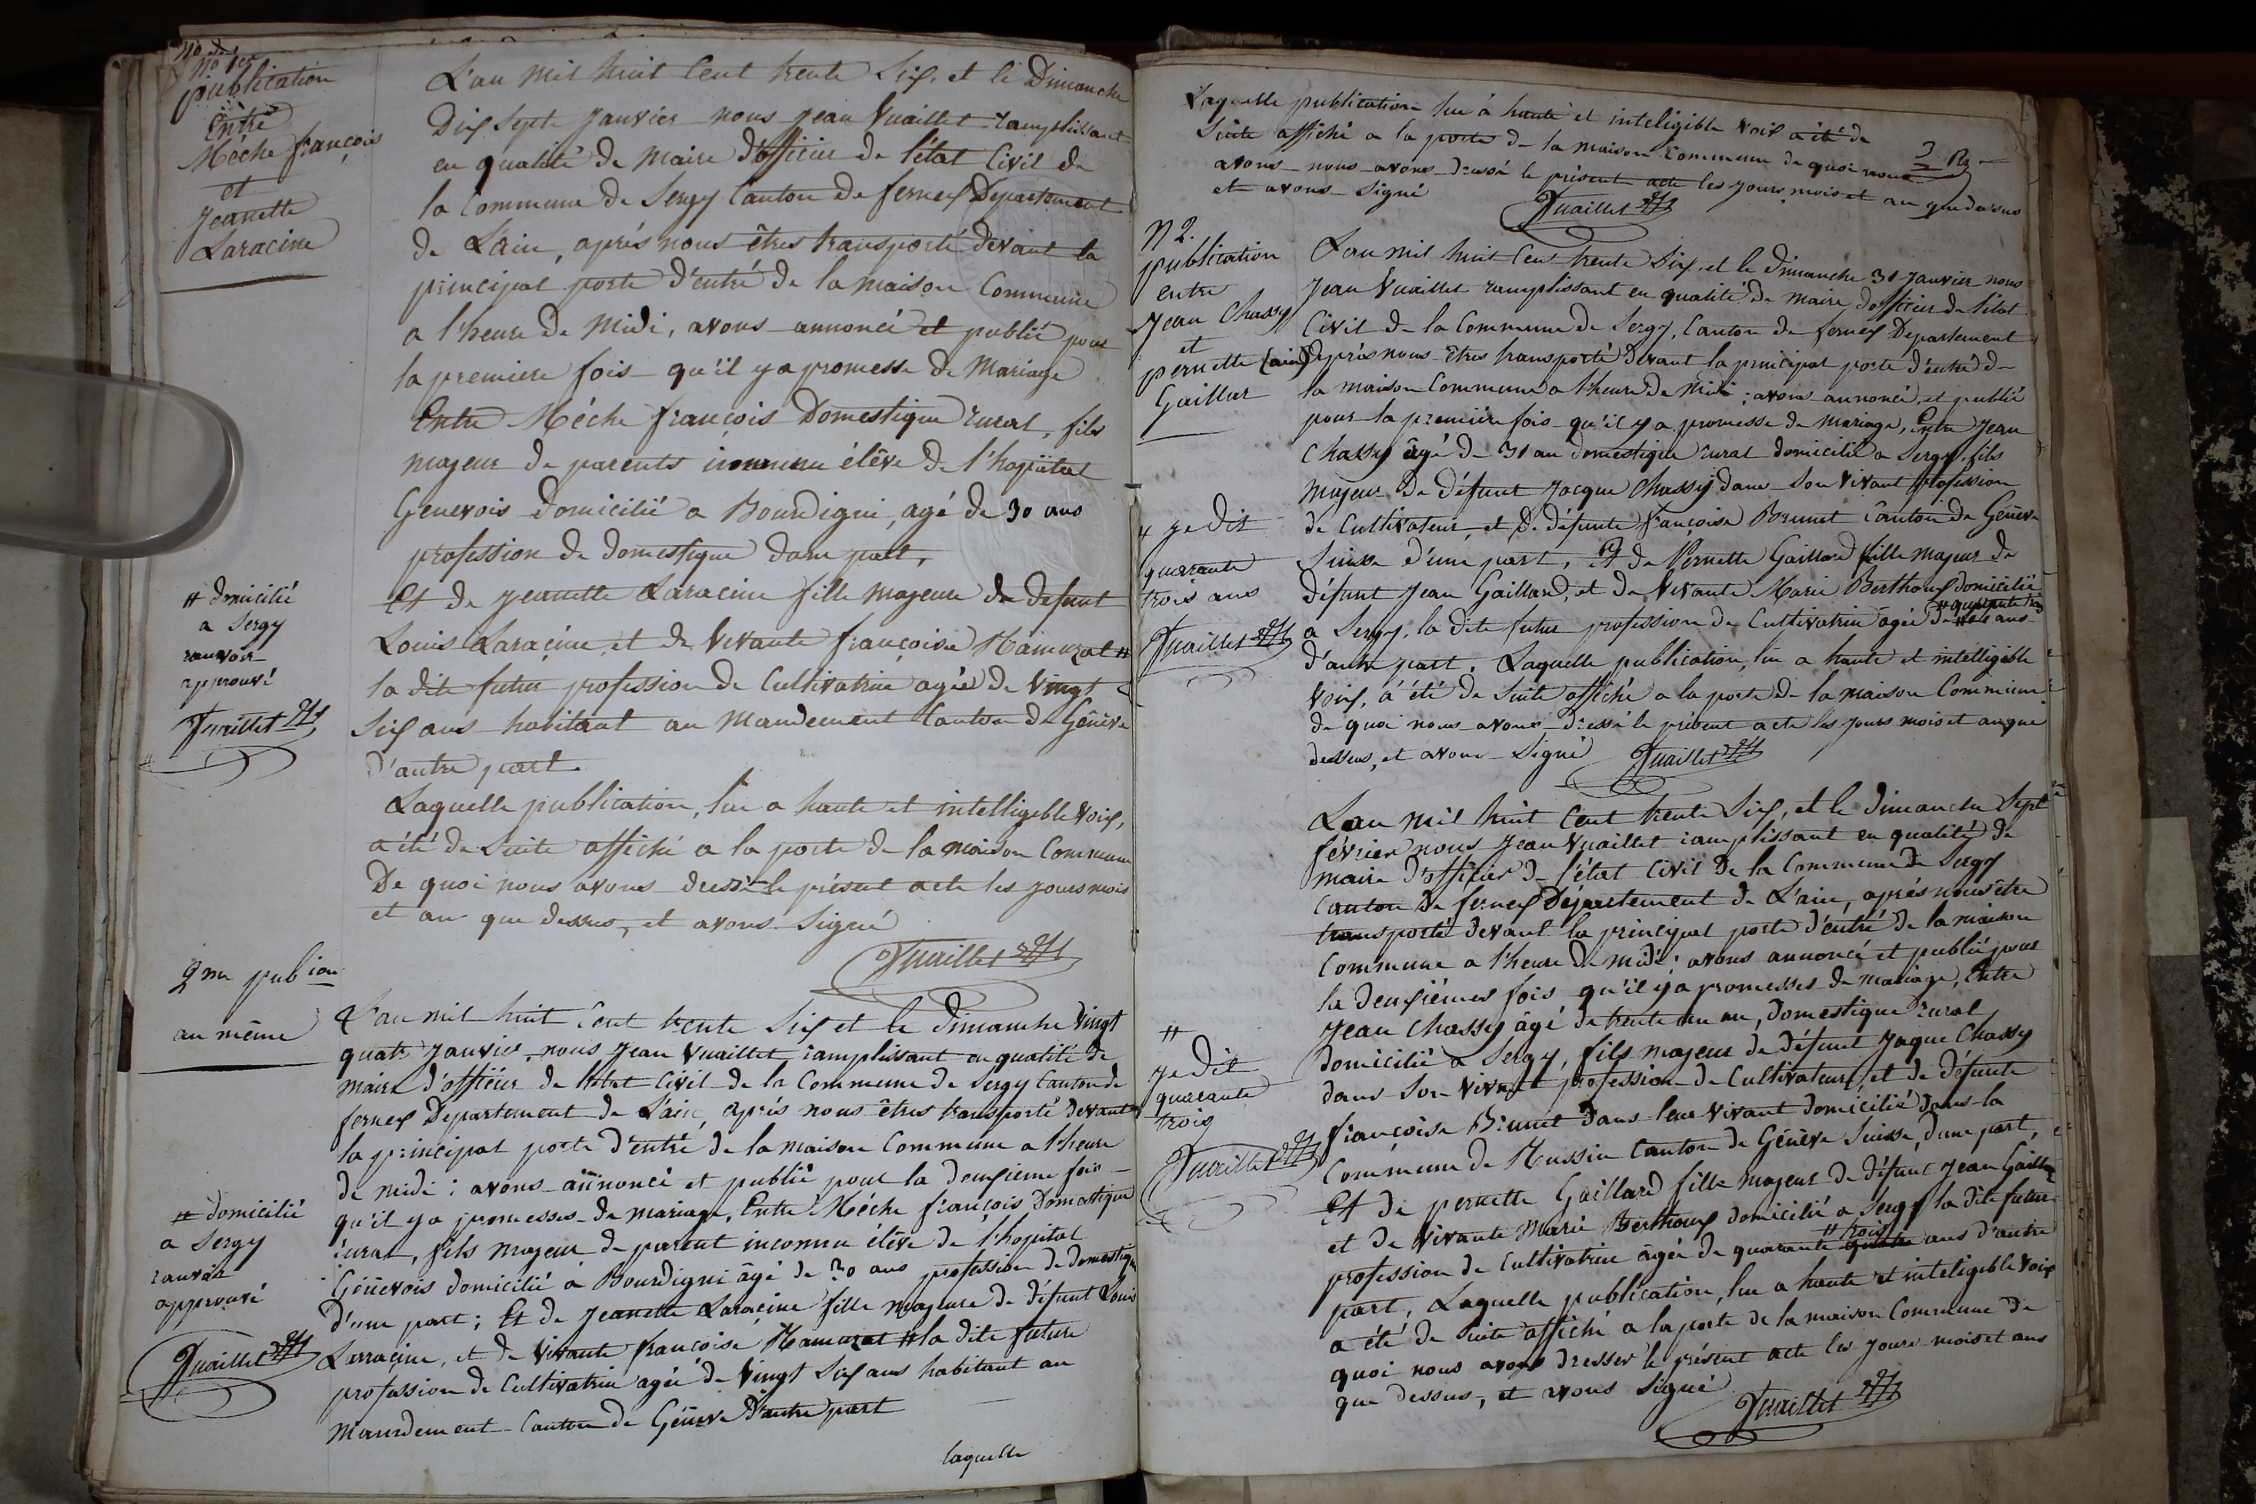 No 1er
publication
Entre
Méche françois
et
Jeanette
Laracine
L'an mil huit Cent trente Six, et le Dimanche
Dix Sept Janvier nous Jean Vuaillet ramplissant
en qualité de Maire d'officier de l'état Civil de
la Commune de Sergy Canton de fernex Departement
de L'ain, aprés nous êtres transporté devant la
principal porte d'entré de la maison Commune
a l'heure de Midi, avons annoncé et publié pour
la premiere fois qu'il y a promesse de Mariage
Entre Méche françois Domestique rural, fils
majeur de parents inconnu éléve de l'hopital
Genevois domicilié a Bourdigni, agé de 30 ans
profession de domestique dune part,
Et de Jeanette Laracine fille majeure de defunt
Louis Laracine et de vivante françoise Mamuzat #
la dite futur profession de Cultivatrice agée de vingt
Six ans habitant au Mandement Canton de Génève
d'autre part.
# domicilié
a Sergy
ranvoir
approuvé
Vuaillet
Laquelle publication, lue a haute et intelligible voix,
a été de Suite affiché a la porte de la maison Commune
De quoi nous avons dressé le présent acte les jours mois
et an que dessus, et avons Signé
Vuaillet
2me pubion
au même
L'an mil huit Cent trente Six et le dimanche vingt
quatre Janvier, nous Jean Vuaillet, ramplissant en qualité de
maire d'officier de l'état Civil de la Commune de Sergy Canton de
fernex Departement de L'ain, aprés nous êtres transporté devant
la principal porte d'entré de la maison Commune a l'heure
de midi : avons annoncé et publié pour la deuxieme fois
qu'il y a promesses de mariage, Entre Méche françois Domestique
rural, fils majeur de parent inconnu éléve de l'hopital
Génevois domicilié a Bourdigni âgé de 30 ans profession de domestique
d'une part ; Et de Jeanette Laracine fille majeure de défunt Louis
Larracine, et de vivante françoise Mamuzat # la dite future
profession de Cultivatrice agée de vingt Six ans habitant au
Mandement Canton de Génève D'autre part
# domicilié
a Sergy
approuvé
Vuaillet
laquelle
Laquelle publication lue à haute et inteligible voix a été de
Suite affiché a la porte de la maison Commune de quoi nous
avons nous avons dressé le présent acte les jours mois et an que dessus
et avons Signé
Vuaillet
N 2.
publication
entre
Jean Chassy
et
pernette
Gaillar
L'an mil huit Cent trente Six, et le dimanche 31 Janvier nous
Jean Vuaillet ramplissant en qualité de maire d'officier de l'état
Civil de la Commune de Sergy, Canton de fernex Departement
(ain) aprés nous êtres transporté devant la principal porte d'entré de
la maison Commune a l'heure de Midi : avons annoncé, et publié
pour la premiére fois qu'il y a promesse de mariage, Entre Jean
Chassy âgé de 31 an domestique rural domicilié a Sergy, fils
majeur de défunt Jacque Chassy dans Son vivant profession
de Cultivateur, et de défunte françoise Brunet Canton de Génève
Suisse d'une part, Et de Pernette Gaillard fille majeur de
défunt Jean Gaillard, et de vivante Marie Berthoux domicilié
a Sergy, la dite futur profession de Cultivatrice âgée de # quarante trois ans
d'autre part. Laquelle publication, lue a haute et intelligible
voix, a été de Suite affiché a la porte de la maison Commune
de quoi nous avons dressé le présent acte les jours mois et an que
dessus, et avons Signé
Vuaillet
je dit
quarante
trois ans
Vuaillet
L'an mil huit Cent trente Six, et le dimanche Sept
février nous Jean Vuaillet ramplissant en qualité de
maire d'officier de l'état Civil de la Commune de Sergy
Canton de fernex Département de L'ain, aprés nous être
transporté devant la principal porte d'entré de la maison
Commune a l'heure de midi : avons annoncé et publié pour
la deuxiémes fois qu'il y a promesses de mariage, Entre
Jean Chassy âgé de trente un an, Domestique rural
domicilié a Sergy, fils majeur de défunt Jaque Chassy
dans Son vivant profession de Cultivateur, et de défunte
françoise Brunet Dans leur vivant domicilié dans la
Commune de Russin Canton de Génève Suisse, d'une part,
Et de pernette Gaillard fille majeur de défunt Jean Gaillar
et de vivante Marie Berthoux domicilié a Sergy la dite future
profession de Cultivatrice âgée de quarante # trois ans d'autre
part, Laquelle publication, lue a haute et inteligible voix
a été de Suite affiché a la porte de la maison Commune de
quoi nous avons dresser le présent acte les jours mois et ans
que dessus, et avons Signé
Vuaillet
#
je dit
quarante
trois
Vuaillet